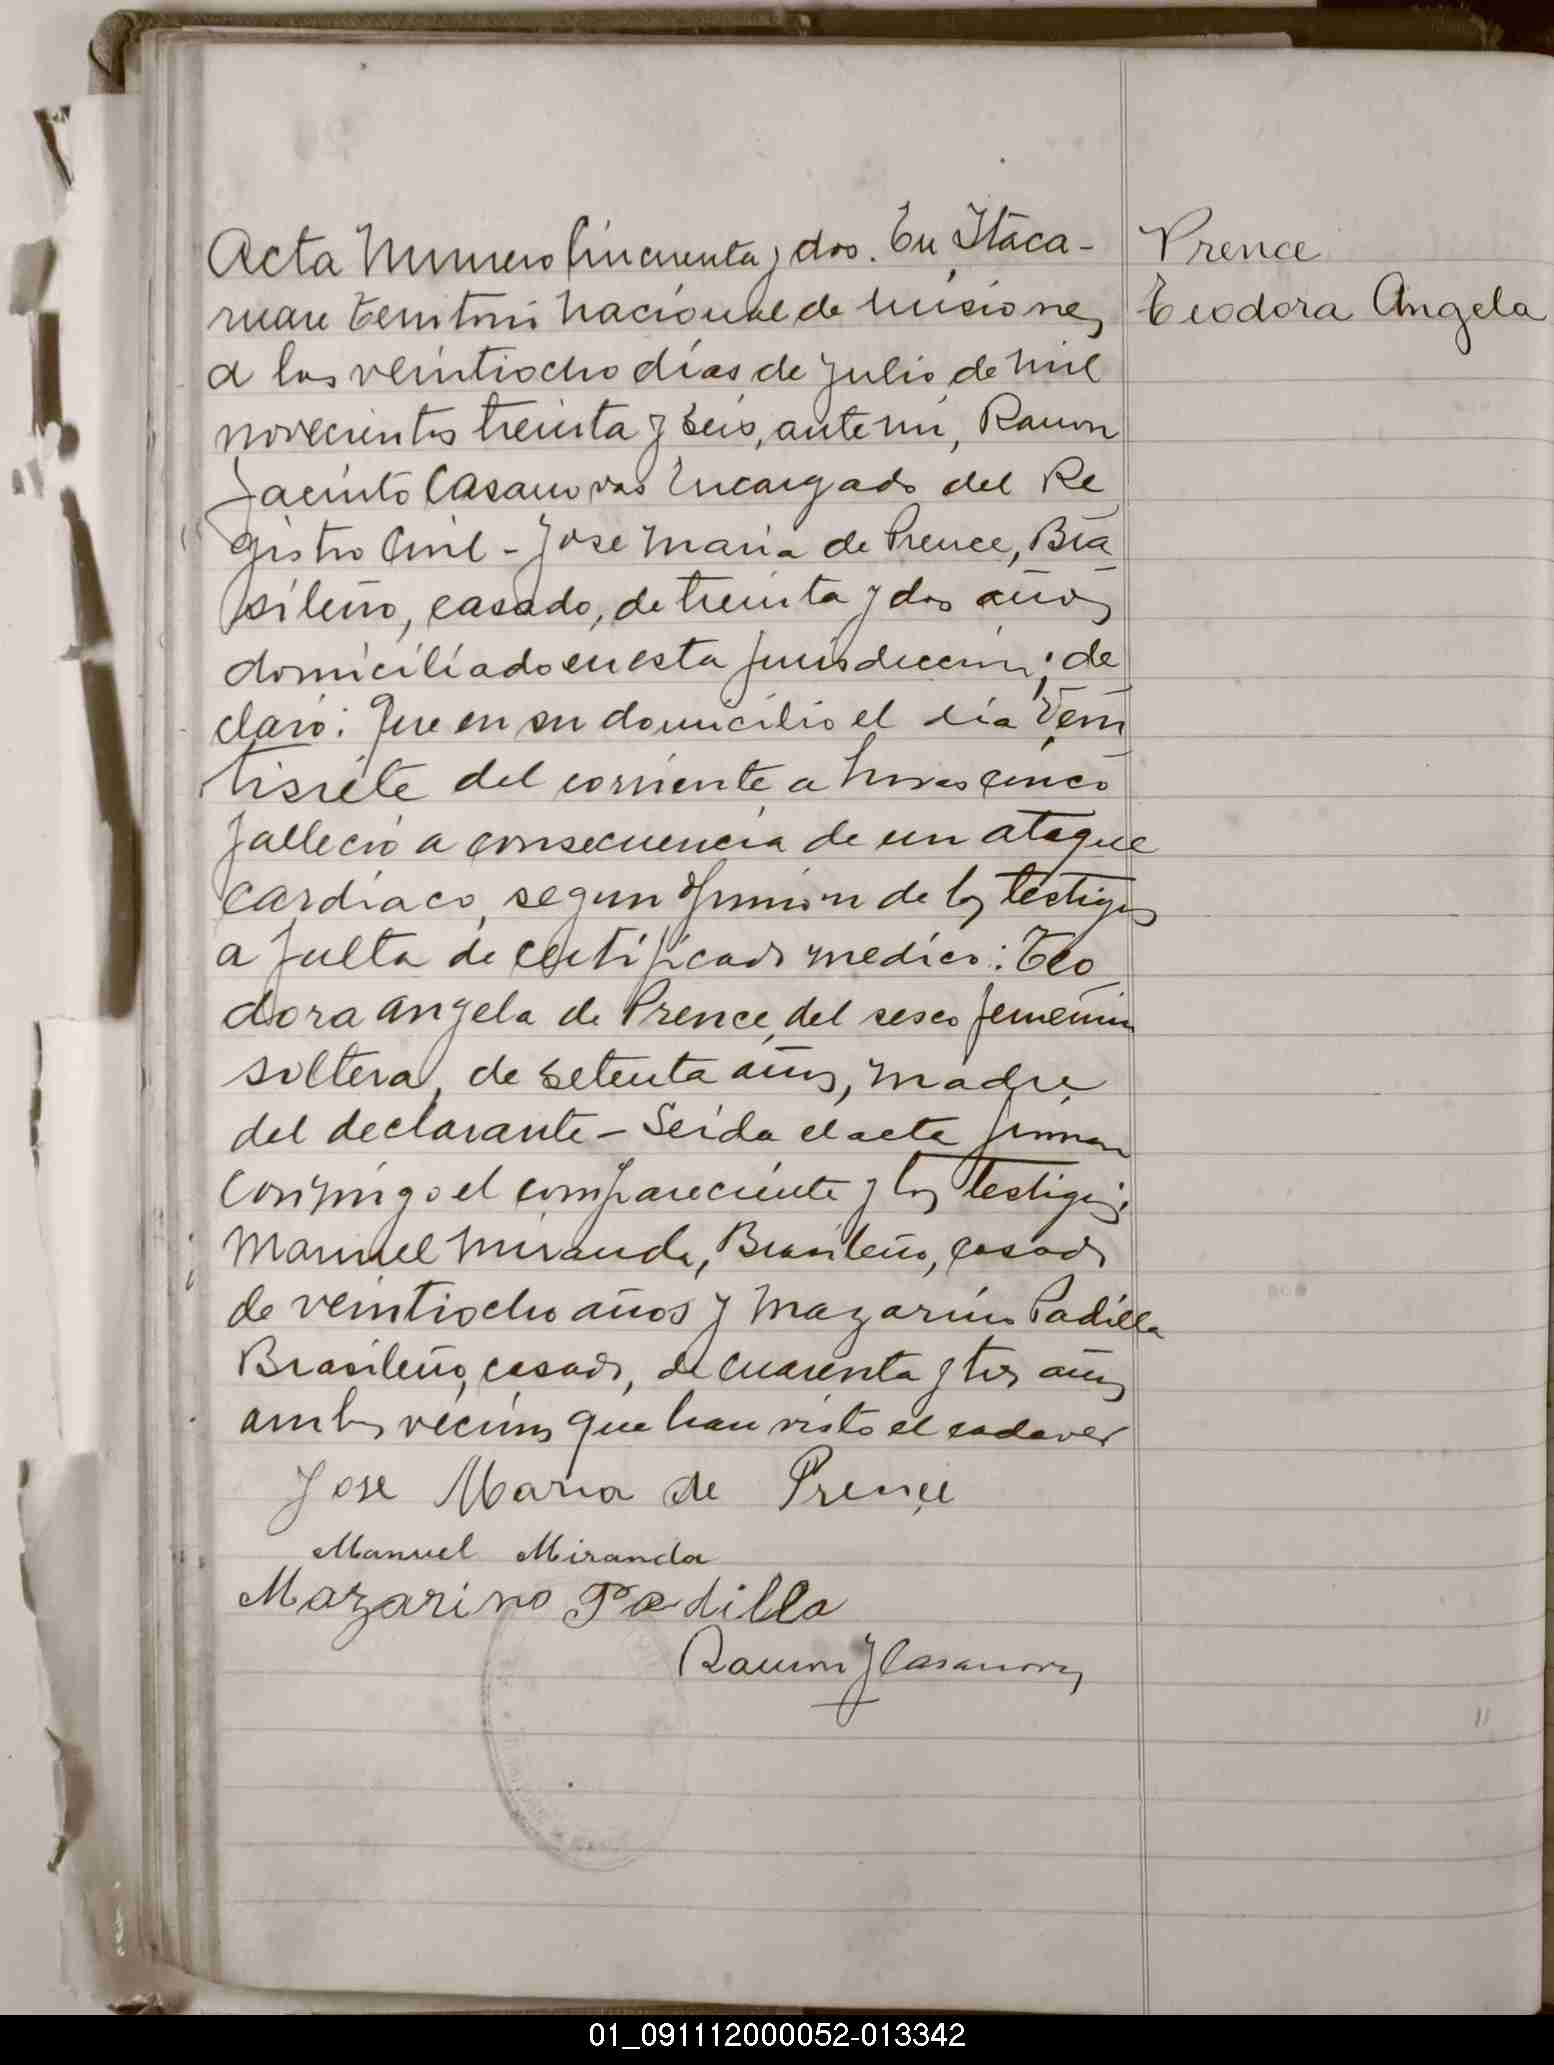 Acta Numero Cincuenta y dos. En Itaca-
ruare Territorio Nacional de Misiones,
a los veintiocho días de Julio de mil
novecientos treinta y seis, ante mi, Ramon
Jacinto Casanovas Encargado del Re
gistro Civil - Jose Maria de Prence, Bra
sileño, casado, de treinta y dos años
domiciliado en esta jurisdiccion; de
claró: Que en su domicilio el día Vein
tisiete del corriente a horas cinco
falleció a consecuencia de un ataque
cardíaco, segun opinión de los testigos
a falta de certificado medico: Teo
dora Angela de Prence, del sexo femenino
soltera, de setenta años, madre
del declarante - Leida el acta firman
conmigo el compareciente y los testigos:
Manuel Miranda, Brasileño, casado
de veintiocho años y Mazarino Padilla
Brasileño, casado, de cuarenta y tres años
ambos vecinos que han visto el cadaver
Jose Maria de Prence
Manuel Miranda
Mazarino Padilla
Ramon J Casanovas
Prence
Teodora Angela
01_091112000052-013342